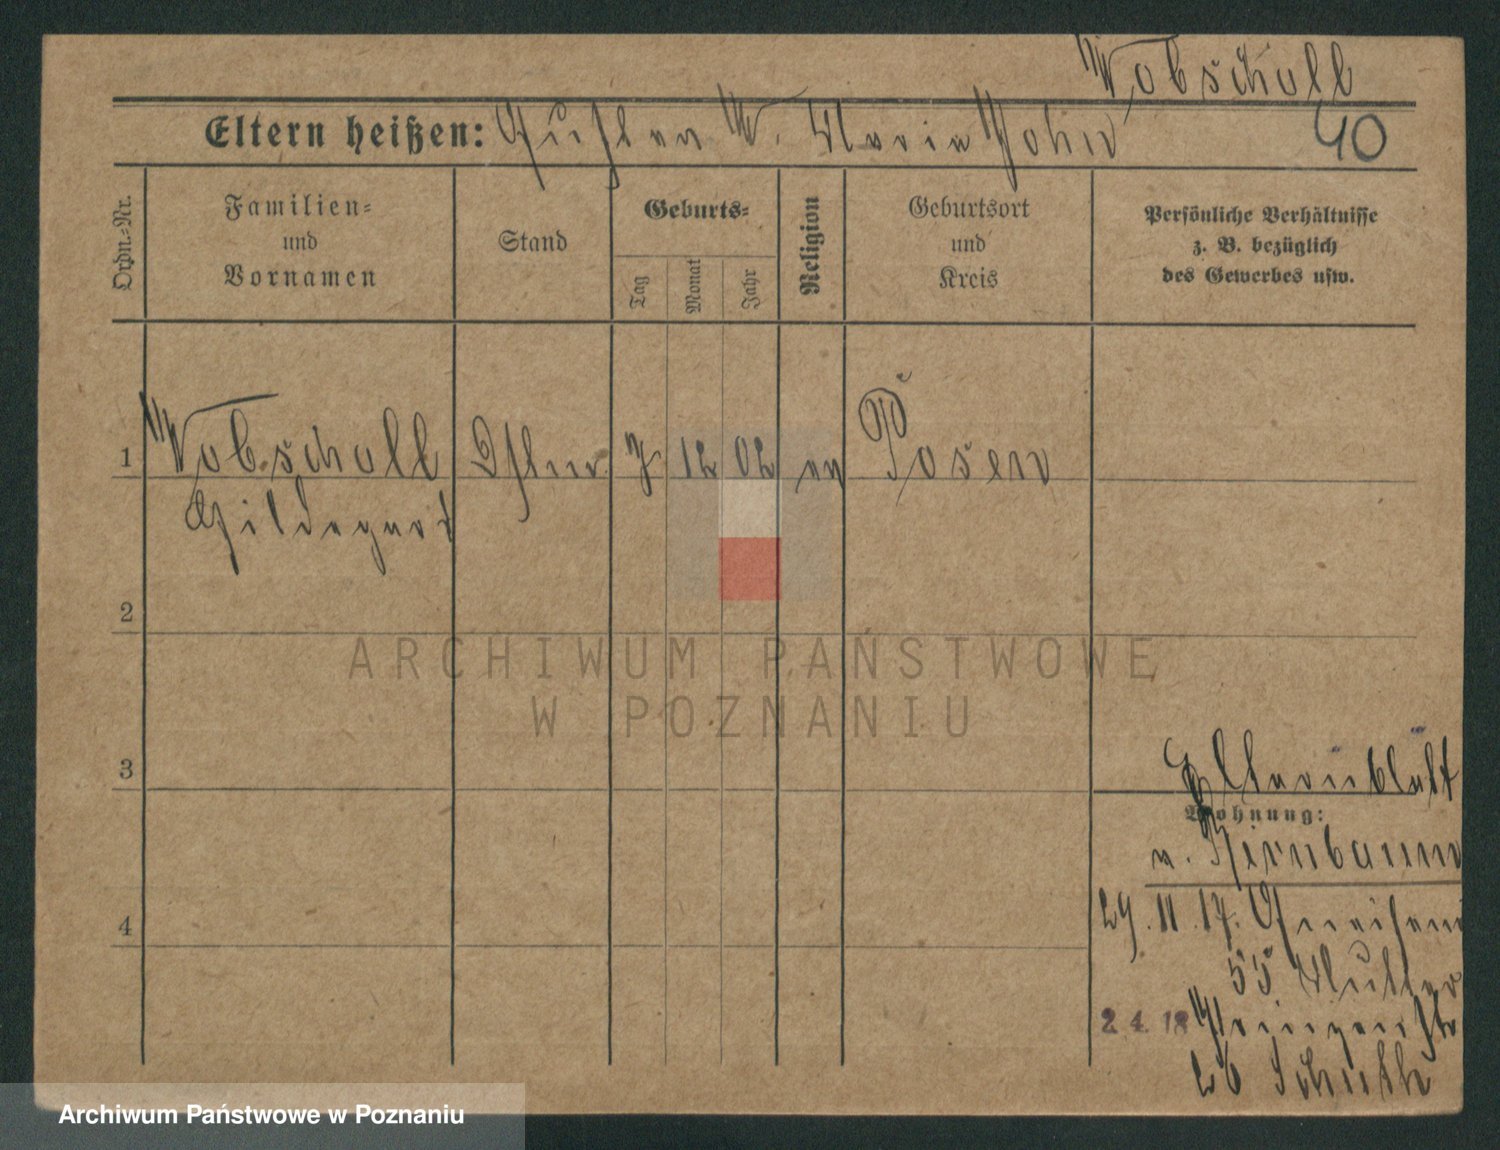 Wobscholl
Eltern heißen: Gustav W. Maria John
40
Ordn.-Nr.
Familien-
und
Vornamen
Stand
Geburts-
Tag
Monat
Jahr
Religion
Geburtsort
und
Kreis
Persönliche Verhältnisse
z. B. bezüglich
des Gewerbes usw.
1 Wobscholl 7 12 02 ev Posen
Hildegard
2
3
4
Elternblatt
Wohnung:
v. Birnbaum
29. 11. 17. Gneisen
55 Mutter
2. 4. 18
26 Schuth
ARCHIWUM PAŃSTWOWE
W POZNANIU
Archiwum Państwowe w Poznaniu